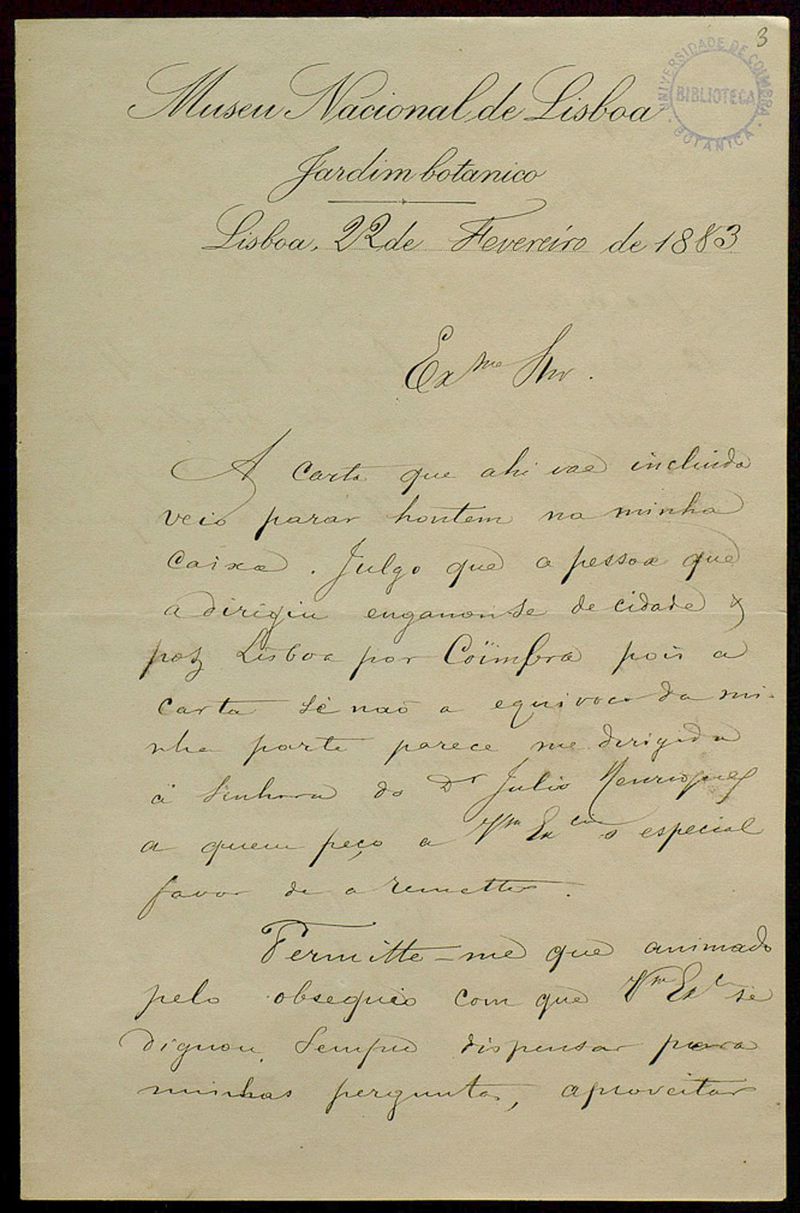 3
UNIVERSIDADE DE COIMBRA
BIBLIOTECA
BOTANICA
Museu Nacional de Lisboa
Jardim botanico
Lisboa, 22 de Fevereiro de 1883
Exmo Snr.
A carta que ahi vae incluida
veio parar hontem na minha
caixa. Julgo que a pessoa que
a dirigiu enganou-se de cidade &
poz Lisboa por Coïmbra pois a
carta se nao a equivoco da mi-
nha parte parece me dirigida
á Senhora do Dr Julio Henriques
a quem peço a Vm Excia o especial
favor de a remetter.
Permitte-me que animado
pelo obsequio com que Vm Exc se
dignou sempre dispensar para
minhas perguntas, aproveitar